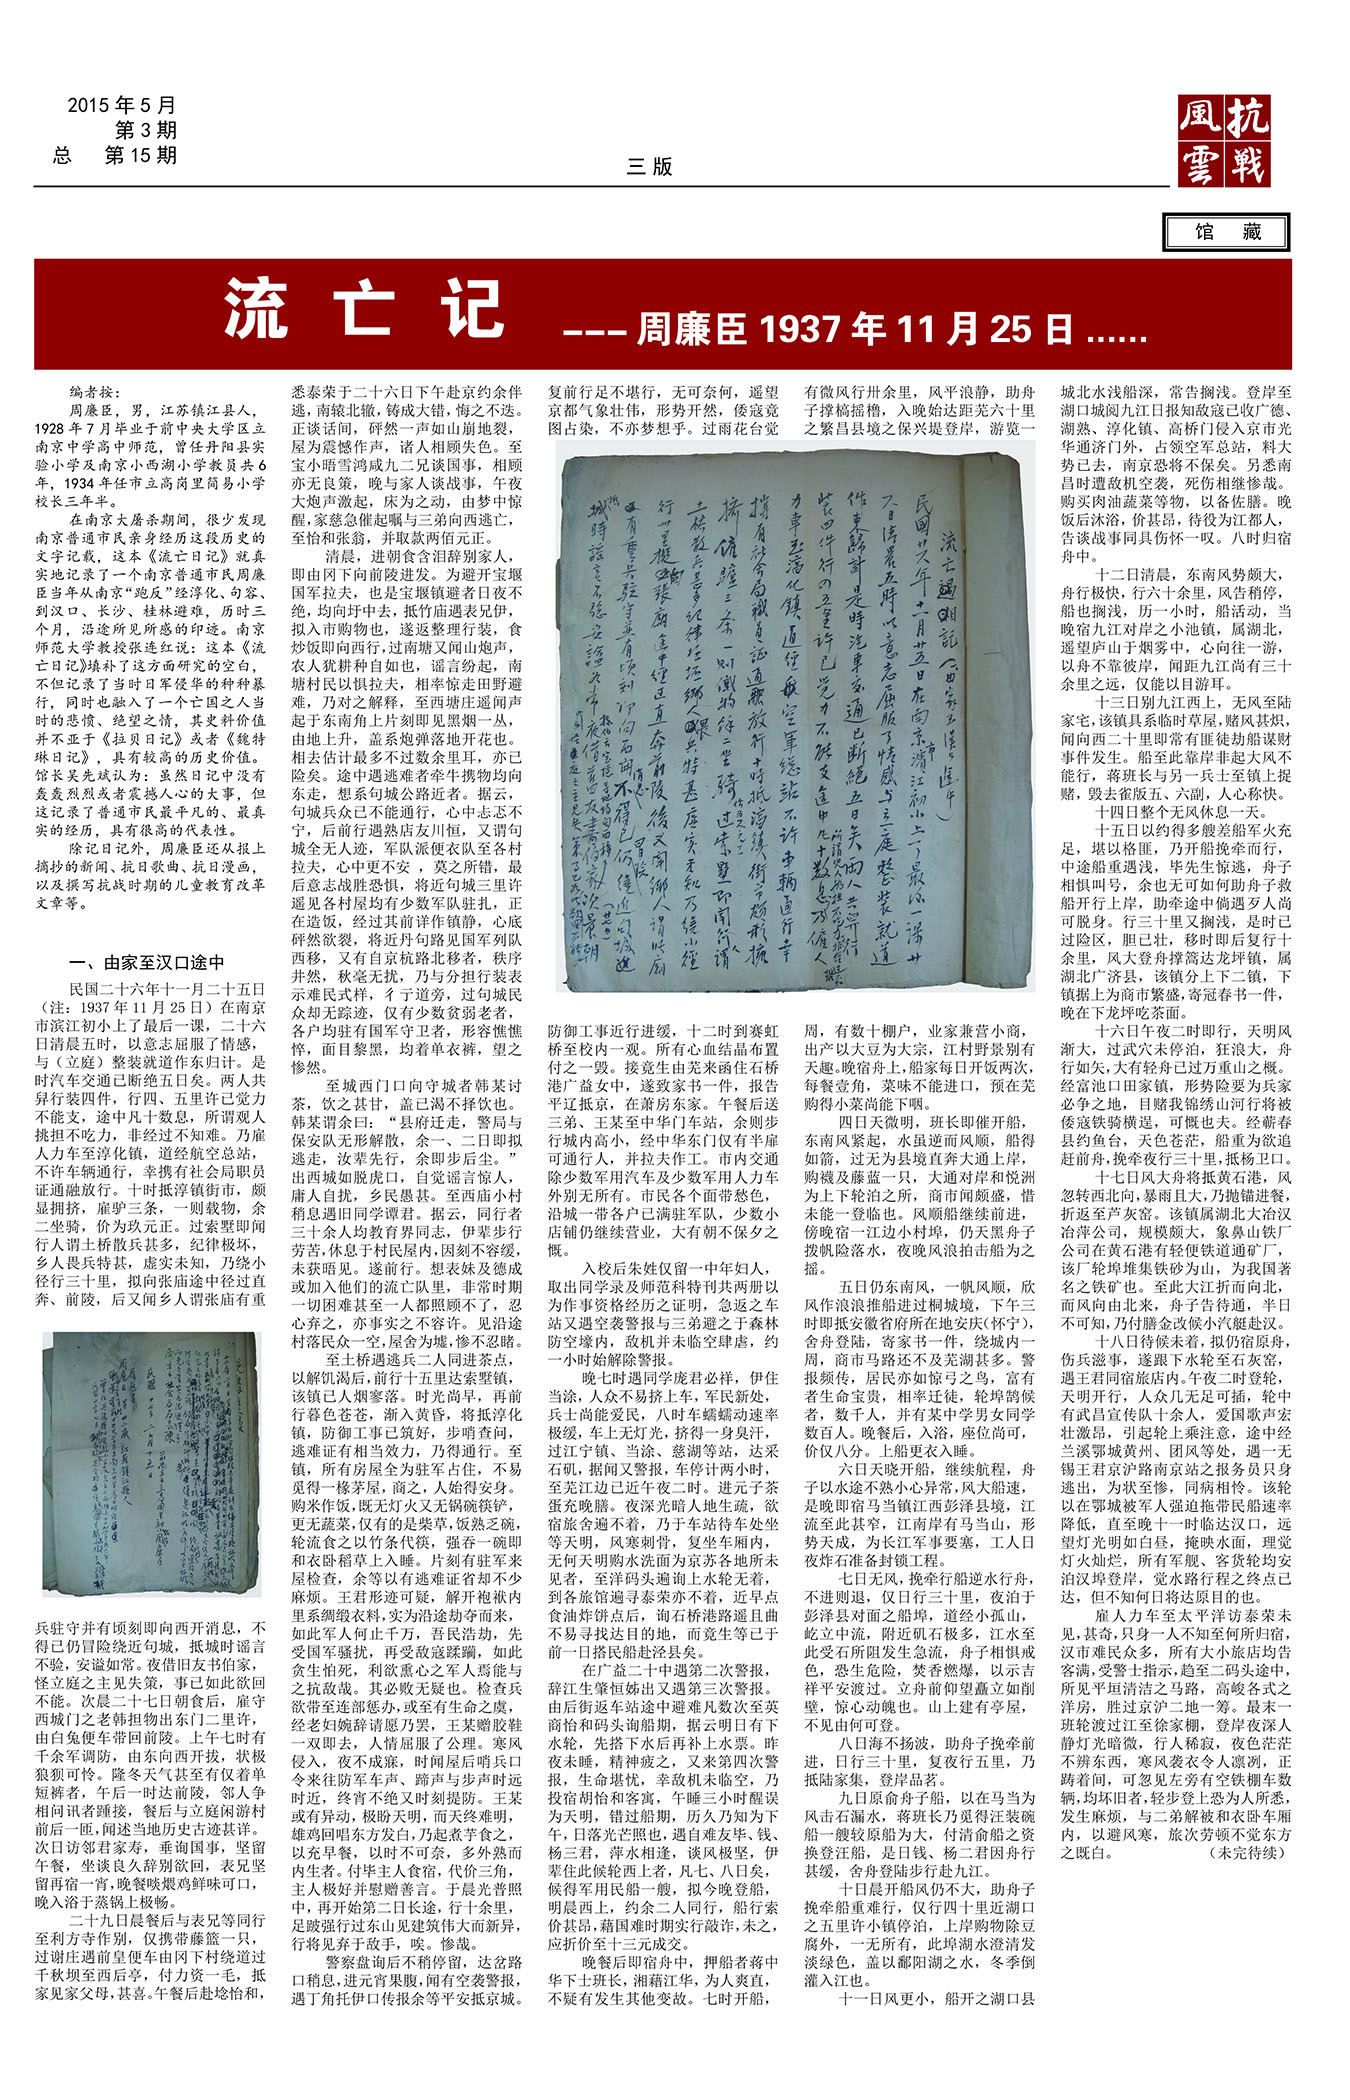 2015 年 5 月
第 3 期
总 第 15 期
三 版
抗戰風雲
馆 藏
流 亡 记
---周廉臣 1937 年 11 月 25 日……
编者按：
周廉臣，男，江苏镇江县人，
1928 年 7 月毕业于前中央大学区立
南京中学高中师范，曾任丹阳县实
验小学及南京小西湖小学教员共 6
年，1934 年任市立高岗里简易小学
校长三年半。
在南京大屠杀期间，很少发现
南京普通市民亲身经历这段历史的
文字记载，这本《流亡日记》就真
实地记录了一个南京普通市民周廉
臣当年从南京“跑反”经淳化、句容、
到汉口、长沙、桂林避难，历时三
个月，沿途所见所感的印迹。南京
师范大学教授张连红说：这本《流
亡日记》填补了这方面研究的空白，
不但记录了当时日军侵华的种种暴
行，同时也融入了一个亡国之人当
时的悲愤、绝望之情，其史料价值
并不亚于《拉贝日记》或者《魏特
琳日记》，具有较高的历史价值。
馆长吴先斌认为：虽然日记中没有
轰轰烈烈或者震撼人心的大事，但
这记录了普通市民最平凡的、最真
实的经历，具有很高的代表性。
除记日记外，周廉臣还从报上
摘抄的新闻、抗日歌曲、抗日漫画，
以及撰写抗战时期的儿童教育改革
文章等。
一、由家至汉口途中
民国二十六年十一月二十五日
（注：1937 年 11 月 25 日）在南京
市滨江初小上了最后一课，二十六
日清晨五时，以意志屈服了情感，
与（立庭）整装就道作东归计。是
时汽车交通已断绝五日矣。两人共
舁行装四件，行四、五里许已觉力
不能支，途中凡十数息，所谓观人
挑担不吃力，非经过不知难。乃雇
人力车至淳化镇，道经航空总站，
不许车辆通行，幸携有社会局职员
证通融放行。十时抵淳镇街市，颇
显拥挤，雇驴三条，一则载物，余
二坐骑，价为玖元正。过索墅即闻
行人谓土桥散兵甚多，纪律极坏，
乡人畏兵特甚，虚实未知，乃绕小
径行三十里，拟向张庙途中径过直
奔、前陵，后又闻乡人谓张庙有重
兵驻守并有顷刻即向西开消息，不
得已仍冒险绕近句城，抵城时谣言
不验，安谧如常。夜借旧友书伯家，
怪立庭之主见失策，事已如此欲回
不能。次晨二十七日朝食后，雇守
西城门之老韩担物出东门二里许，
由白兔便车带回前陵。上午七时有
千余军调防，由东向西开拔，状极
狼狈可怜。隆冬天气甚至有仅着单
短裤者，午后一时达前陵，邻人争
相问讯者踵接，餐后与立庭闲游村
前后一匝，闻述当地历史古迹甚详。
次日访邻君家寿，垂询国事，坚留
午餐，坐谈良久辞别欲回，表兄坚
留再宿一宵，晚餐啖煨鸡鲜味可口，
晚入浴于蒸锅上极畅。
二十九日晨餐后与表兄等同行
至利方寺作别，仅携带藤篮一只，
过谢庄遇前皇便车由冈下村绕道过
千秋坝至西后亭，付力资一毛，抵
家见家父母，甚喜。午餐后赴埝怡和，
悉泰荣于二十六日下午赴京约余伴
逃，南辕北辙，铸成大错，悔之不迭。
正谈话间，砰然一声如山崩地裂，
屋为震憾作声，诸人相顾失色。至
宝小晤雪鸿咸九二兄谈国事，相顾
亦无良策，晚与家人谈战事，午夜
大炮声激起，床为之动，由梦中惊
醒，家慈急催起嘱与三弟向西逃亡，
至怡和张翁，并取款两佰元正。
清晨，进朝食含泪辞别家人，
即由冈下向前陵进发。为避开宝堰
国军拉夫，也是宝堰镇避者日夜不
绝，均向圩中去，抵竹庙遇表兄伊，
拟入市购物也，遂返整理行装，食
炒饭即向西行，过南塘又闻山炮声，
农人犹耕种自如也，谣言纷起，南
塘村民以惧拉夫，相率惊走田野避
难，乃对之解释，至西塘庄遥闻声
起于东南角上片刻即见黑烟一丛，
由地上升，盖系炮弹落地开花也。
相去估计最多不过数余里耳，亦已
险矣。途中遇逃难者牵牛携物均向
东走，想系句城公路近者。据云，
句城兵众已不能通行，心中忐忑不
宁，后前行遇熟店友川恒，又谓句
城全无人迹，军队派便衣队至各村
拉夫，心中更不安 ，莫之所错，最
后意志战胜恐惧，将近句城三里许
遥见各村屋均有少数军队驻扎，正
在造饭，经过其前详作镇静，心底
砰然欲裂，将近丹句路见国军列队
西移，又有自京杭路北移者，秩序
井然，秋毫无扰，乃与分担行装表
示难民式样，彳亍道旁，过句城民
众却无踪迹，仅有少数贫弱老者，
各户均驻有国军守卫者，形容憔憔
悴，面目黎黑，均着单衣裤，望之
惨然。
至城西门口向守城者韩某讨
茶，饮之甚甘，盖已渴不择饮也。
韩某谓余曰：“县府迁走，警局与
保安队无形解散，余一、二日即拟
逃走，汝辈先行，余即步后尘。”
出西城如脱虎口，自觉谣言惊人，
庸人自扰，乡民愚甚。至西庙小村
稍息遇旧同学谭君。据云，同行者
三十余人均教育界同志，伊辈步行
劳苦，休息于村民屋内，因刻不容缓，
未获晤见。遂前行。想表妹及德成
或加入他们的流亡队里，非常时期
一切困难甚至一人都照顾不了，忍
心弃之，亦事实之不容许。见沿途
村落民众一空，屋舍为墟，惨不忍睹。
至土桥遇逃兵二人同进茶点，
以解饥渴后，前行十五里达索墅镇，
该镇已人烟寥落。时光尚早，再前
行暮色苍苍，渐入黄昏，将抵淳化
镇，防御工事已筑好，步哨查问，
逃难证有相当效力，乃得通行。至
镇，所有房屋全为驻军占住，不易
觅得一椽茅屋，商之，人始得安身。
购米作饭，既无灯火又无锅碗筷铲，
更无蔬菜，仅有的是柴草，饭熟乏碗，
轮流食之以竹条代筷，强吞一碗即
和衣卧稻草上入睡。片刻有驻军来
屋检查，余等以有逃难证省却不少
麻烦。王君形迹可疑，解开袍袱内
里系绸缎衣料，实为沿途劫夺而来，
如此军人何止千万，吾民浩劫，先
受国军骚扰，再受敌寇蹂躏，如此
贪生怕死，利欲熏心之军人焉能与
之抗敌哉。其必败无疑也。检查兵
欲带至连部惩办，或至有生命之虞，
经老妇婉辞请愿乃罢，王某赠胶鞋
一双即去，人情屈服了公理。寒风
侵入，夜不成寐，时闻屋后哨兵口
令来往防军车声、蹄声与步声时远
时近，终宵不绝又时刻提防。王某
或有异动，极盼天明，而天终难明，
雄鸡回唱东方发白，乃起煮芋食之，
以充早餐，以时不可奈，多外熟而
内生者。付毕主人食宿，代价三角，
主人极好并慰赠善言。于晨光普照
中，再开始第二日长途，行十余里，
足跛强行过东山见建筑伟大而新异，
行将见弃于敌手，唉。惨哉。
警察盘询后不稍停留，达岔路
口稍息，进元宵果腹，闻有空袭警报，
遇丁角托伊口传报余等平安抵京城。
复前行足不堪行，无可奈何，遥望
京都气象壮伟，形势开然，倭寇竟
图占染，不亦梦想乎。过雨花台觉
防御工事近行进缓，十二时到赛虹
桥至校内一观。所有心血结晶布置
付之一毁。接竟生由芜来函住石桥
港广益女中，遂致家书一件，报告
平辽抵京，在萧房东家。午餐后送
三弟、王某至中华门车站，余则步
行城内高小，经中华东门仅有半扉
可通行人，并拉夫作工。市内交通
除少数军用汽车及少数军用人力车
外别无所有。市民各个面带愁色，
沿城一带各户已满驻军队，少数小
店铺仍继续营业，大有朝不保夕之
慨。
入校后朱姓仅留一中年妇人，
取出同学录及师范科特刊共两册以
为作事资格经历之证明，急返之车
站又遇空袭警报与三弟避之于森林
防空壕内，敌机并未临空肆虐，约
一小时始解除警报。
晚七时遇同学庞君必祥，伊住
当涂，人众不易挤上车，军民新处，
兵士尚能爱民，八时车蠕蠕动速率
极缓，车上无灯光，挤得一身臭汗，
过江宁镇、当涂、慈湖等站，达采
石矶，据闻又警报，车停计两小时，
至芜江边已近午夜二时。进元子茶
蛋充晚膳。夜深光暗人地生疏，欲
宿旅舍遍不着，乃于车站待车处坐
等天明，风寒刺骨，复坐车厢内，
无何天明购水洗面为京苏各地所未
见者，至洋码头遍询上水轮无着，
到各旅馆遍寻泰荣亦不着，近早点
食油炸饼点后，询石桥港路遥且曲
不易寻找达目的地，而竟生等已于
前一日搭民船赴泾县矣。
在广益二十中遇第二次警报，
辞江生肇恒姊出又遇第三次警报。
由后街返车站途中避难凡数次至英
商怡和码头询船期，据云明日有下
水轮，先搭下水后再补上水票。昨
夜未睡，精神疲乏，又来第四次警
报，生命堪忧，幸敌机未临空，乃
投宿胡怡和客寓，午睡三小时醒误
为天明，错过船期，历久乃知为下
午，日落光芒照也，遇自难友毕、钱、
杨三君，萍水相逢，谈风极坚，伊
辈住此候轮西上者，凡七、八日矣，
候得军用民船一艘，拟今晚登船，
明晨西上，约余二人同行，船行索
价甚昂，藉国难时期实行敲诈，未之，
应折价至十三元成交。
晚餐后即宿舟中，押船者蒋中
华下士班长，湘藉江华，为人爽直，
不疑有发生其他变故。七时开船，
有微风行卅余里，风平浪静，助舟
子撑槁摇橹，入晚始达距芜六十里
之繁昌县境之保兴堤登岸，游览一
周，有数十棚户，业家兼营小商，
出产以大豆为大宗，江村野景别有
天趣。晚宿舟上，船家每日开饭两次，
每餐壹角，菜味不能进口，预在芜
购得小菜尚能下咽。
四日天微明，班长即催开船，
东南风紧起，水虽逆而风顺，船得
如箭，过无为县境直奔大通上岸，
购襪及藤蓝一只，大通对岸和悦洲
为上下轮泊之所，商市闻颇盛，惜
未能一登临也。风顺船继续前进，
傍晚宿一江边小村埠，仍天黑舟子
拨帆险落水，夜晚风浪拍击船为之
摇。
五日仍东南风，一帆风顺，欣
风作浪浪推船进过桐城境，下午三
时即抵安徽省府所在地安庆(怀宁)，
舍舟登陆，寄家书一件，绕城内一
周，商市马路还不及芜湖甚多。警
报频传，居民亦如惊弓之鸟，富有
者生命宝贵，相率迁徒，轮埠鹄候
者，数千人，并有某中学男女同学
数百人。晚餐后，入浴，座位尚可，
价仅八分。上船更衣入睡。
六日天晓开船，继续航程，舟
子以水途不熟小心异常，风大船速，
是晚即宿马当镇江西彭泽县境，江
流至此甚窄，江南岸有马当山，形
势天成，为长江军事要塞，工人日
夜炸石准备封锁工程。
七日无风，挽牵行船逆水行舟，
不进则退，仅日行三十里，夜泊于
彭泽县对面之船埠，道经小孤山，
屹立中流，附近矶石极多，江水至
此受石所阻发生急流，舟子相惧戒
色，恐生危险，焚香燃爆，以示吉
祥平安渡过。立舟前仰望矗立如削
壁，惊心动魄也。山上建有亭屋，
不见由何可登。
八日海不扬波，助舟子挽牵前
进，日行三十里，复夜行五里，乃
抵陆家集，登岸品茗。
九日原俞舟子船，以在马当为
风击石漏水，蒋班长乃觅得汪装碗
船一艘较原船为大，付清俞船之资
换登汪船，是日钱、杨二君因舟行
甚缓，舍舟登陆步行赴九江。
十日晨开船风仍不大，助舟子
挽牵船重难行，仅行四十里近湖口
之五里许小镇停泊，上岸购物除豆
腐外，一无所有，此埠湖水澄清发
淡绿色，盖以鄱阳湖之水，冬季倒
灌入江也。
十一日风更小，船开之湖口县
城北水浅船深，常告搁浅。登岸至
湖口城阅九江日报知敌寇已收广德、
湖熟、淳化镇、高桥门侵入京市光
华通济门外，占领空军总站，料大
势已去，南京恐将不保矣。另悉南
昌时遭敌机空袭，死伤相继惨哉。
购买肉油蔬菜等物，以备佐膳。晚
饭后沐浴，价甚昂，待役为江都人，
告谈战事同具伤怀一叹。八时归宿
舟中。
十二日清晨，东南风势颇大，
舟行极快，行六十余里，风告稍停，
船也搁浅，历一小时，船活动，当
晚宿九江对岸之小池镇，属湖北，
遥望庐山于烟雾中，心向往一游，
以舟不靠彼岸，闻距九江尚有三十
余里之远，仅能以目游耳。
十三日别九江西上，无风至陆
家宅，该镇具系临时草屋，赌风甚炽，
闻向西二十里即常有匪徒劫船谋财
事件发生。船至此靠岸非起大风不
能行，蒋班长与另一兵士至镇上捉
赌，毁去雀版五、六副，人心称快。
十四日整个无风休息一天。
十五日以约得多艘差船军火充
足，堪以格匪，乃开船挽牵而行，
中途船重遇浅，毕先生惊逃，舟子
相惧叫号，余也无可如何助舟子救
船开行上岸，助牵途中倘遇歹人尚
可脱身。行三十里又搁浅，是时已
过险区，胆已壮，移时即后复行十
余里，风大登舟撑篙达龙坪镇，属
湖北广济县，该镇分上下二镇，下
镇据上为商市繁盛，寄冠春书一件，
晚在下龙坪吃茶面。
十六日午夜二时即行，天明风
渐大，过武穴未停泊，狂浪大，舟
行如矢，大有轻舟已过万重山之概。
经富池口田家镇，形势险要为兵家
必争之地，目赌我锦绣山河行将被
倭寇铁骑横逞，可慨也夫。经蕲春
县约鱼台，天色苍茫，船重为欲追
赶前舟，挽牵夜行三十里，抵杨卫口。
十七日风大舟将抵黄石港，风
忽转西北向，暴雨且大，乃抛锚进餐，
折返至芦灰窑。该镇属湖北大冶汉
冶萍公司，规模颇大，象鼻山铁厂
公司在黄石港有轻便铁道通矿厂，
该厂轮埠堆集铁砂为山，为我国著
名之铁矿也。至此大江折而向北，
而风向由北来，舟子告待通，半日
不可知，乃付膳金改候小汽艇赴汉。
十八日待候未着，拟仍宿原舟，
伤兵滋事，遂跟下水轮至石灰窑，
遇王君同宿旅店内。午夜二时登轮，
天明开行，人众几无足可插，轮中
有武昌宣传队十余人，爱国歌声宏
壮激昂，引起轮上乘注意，途中经
兰溪鄂城黄州、团风等处，遇一无
锡王君京沪路南京站之报务员只身
逃出，为状至惨，同病相怜。该轮
以在鄂城被军人强迫拖带民船速率
降低，直至晚十一时临达汉口，远
望灯光明如白昼，掩映水面，理觉
灯火灿烂，所有军舰、客货轮均安
泊汉埠登岸，觉水路行程之终点已
达，但不知何日将达原目的也。
雇人力车至太平洋访泰荣未
见，甚奇，只身一人不知至何所归宿，
汉市难民众多，所有大小旅店均告
客满，受警士指示，趋至二码头途中，
所见平垣清洁之马路，高峻各式之
洋房，胜过京沪二地一筹。最末一
班轮渡过江至徐家棚，登岸夜深人
静灯光暗微，行人稀寂，夜色茫茫
不辨东西，寒风袭衣令人凛冽，正
踌着间，可忽见左旁有空铁棚车数
辆，均坏旧者，轻步登上恐为人所悉，
发生麻烦，与二弟解被和衣卧车厢
内，以避风寒，旅次劳顿不觉东方
之既白。 （未完待续）